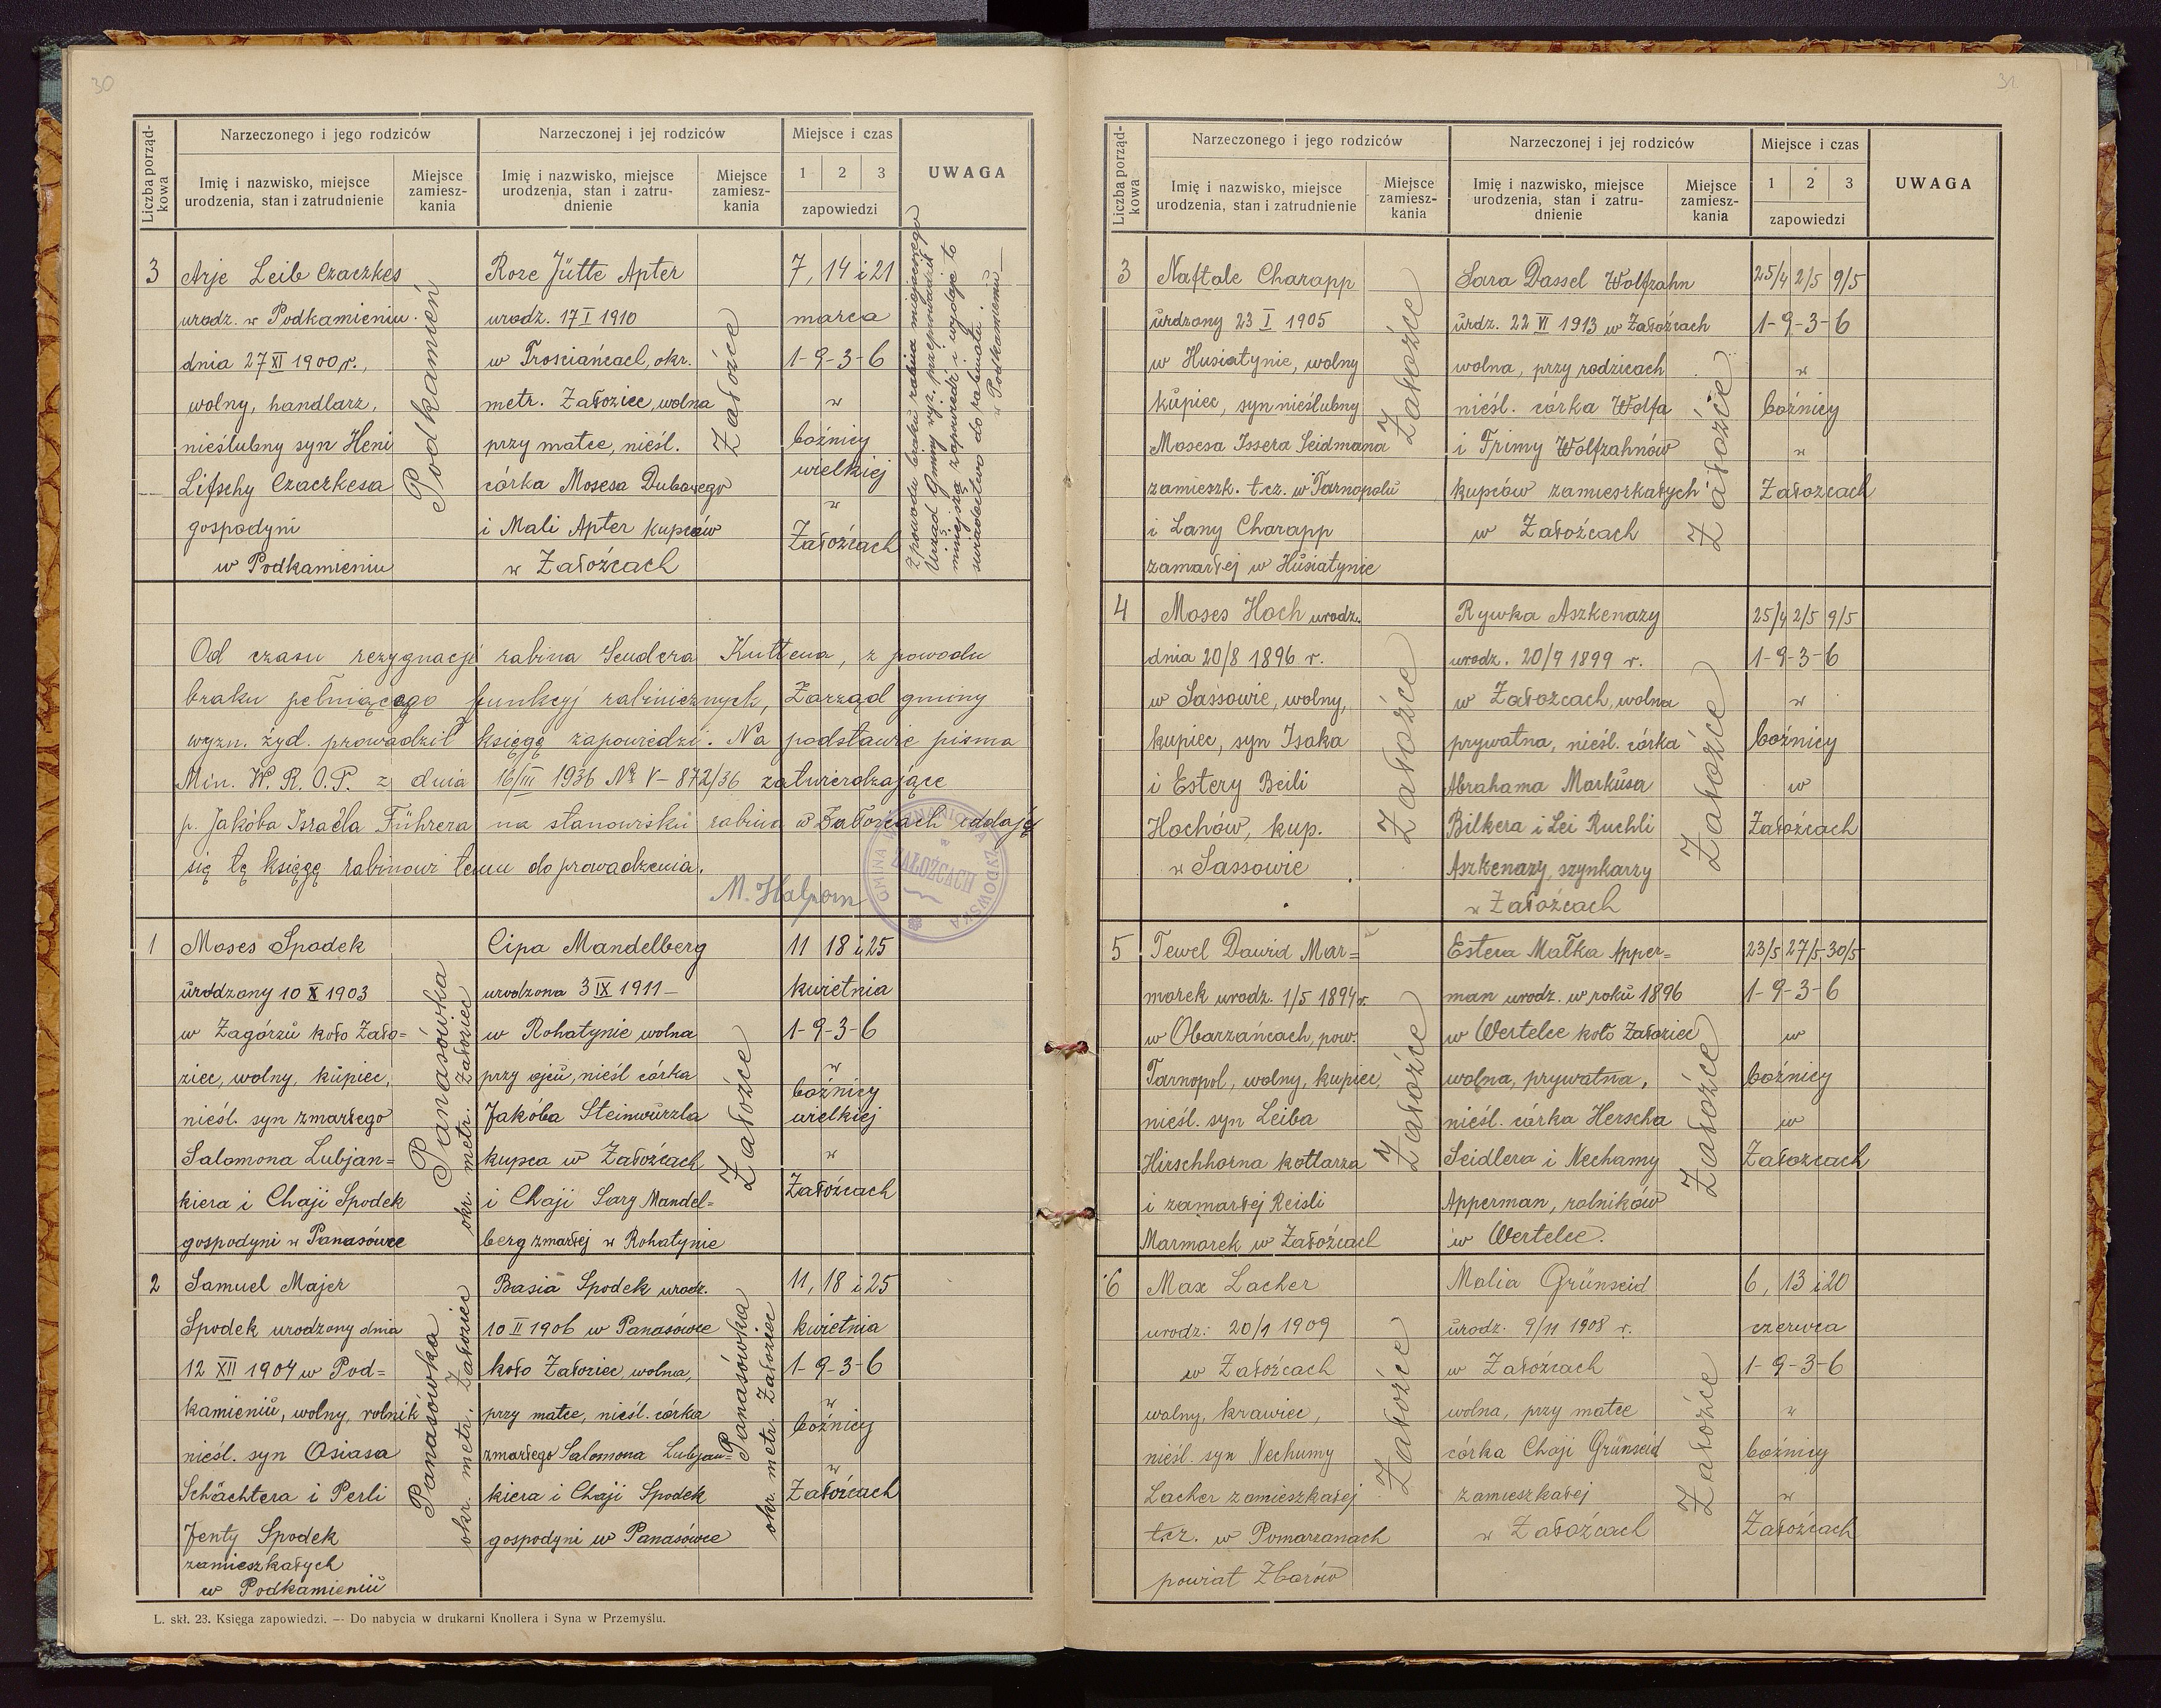 30
Liczba porząd-
kowa
Narzeczonego i jego rodziców
Narzeczonej i jej rodziców
Miejsce i czas
UWAGA
Imię i nazwisko, miejsce
urodzenia, stan i zatrudnienie
Miejsce
zamiesz-
kania
Imię i nazwisko, miejsce
urodzenia, stan i zatru-
dnienie
Miejsce
zamiesz-
kania
1 2 3
zapowiedzi
3
Arje Leib Czaczkes
urodz. w Podkamieniu
dnia 27 XI 1900 r.,
wolny, handlarz,
nieślubny syn Heni
Lifschy Czaczkesa
gospodyni
w Podkamieniu
Podkamień
Roze Jütte Apter
urodz. 17 I 1910
w Trościańcach, okr.
metr. Załoziec, wolna
przy matce, nieśl.
córka Mosesa Dubowego
i Mali Apter kupców
w Załoźcach
Załoźce
7, 14 i 21
marca
1-9-3-6
w
bożnicy
wielkiej
w
Załoźcach
Z powodu braku rabina miejscowego
Urząd Gminy wyz. przeprowadził
niniejszą zapowiedź i wydaje to
świadectwo do rabinatu
w Podkamieniu —
Od czasu rezygnacji rabina Sendera Kuttena, z powodu
braku pełniącego funkcyj rabinicznych, Zarząd gminy
wyzn. żyd. prowadził księgę zapowiedzi. Na podstawie pisma
Min. W. R. O. P. z dnia 16/III 1936 Nr V-872/36 zatwierdzające
p. Jakóba Izraela Führera na stanowisku rabina w Załoźcach oddaję
się tę księgę rabinowi temu do prowadzenia.
M. Halpern
GMINA WYZNANIOWA ŻYDOWSKA
w
ZAŁOŹCACH
1
Moses Spodek
urodzony 10 X 1903
w Zagórzu koło Zało=
ziec, wolny, kupiec,
nieśl. syn zmarłego
Salomona Lubjan=
kiera i Chaji Spodek
gospodyni w Panasówce
Panasówka
okr. metr. Załoziec
Cipa Mandelberg
urodzona 3 IX 1911 —
w Rohatynie wolna
przy ojcu, nieśl córka
Jakóba Steinwurzla
kupca w Załoźcach
i Chaji Sary Mandel=
berg zmarłej w Rohatynie
Załoźce
11 18 i 25
kwietnia
1-9-3-6
w
bożnicy
wielkiej
w
Załoźcach
2
Samuel Majer
Spodek urodzony dnia
12 XII 1904 w Pod=
kamieniu, wolny, rolnik
nieśl. syn Osiasa
Schächtera i Perli
Jenty Spodek
zamieszkałych
w Podkamieniu
Panasówka
okr. metr. Załoziec
Basia Spodek urodz.
10 II 1906 w Panasówce
koło Załoziec, wolna,
przy matce, nieśl. córka
zmarłego Salomona Lubjan=
kiera i Chaji Spodek
gospodyni w Panasówce
Panasówka
okr. metr. Załoziec
11, 18 i 25
kwietnia
1-9-3-6
w
bożnicy
w
Załoźcach
L. skł. 23. Księga zapowiedzi. — Do nabycia w drukarni Knollera i Syna w Przemyślu.
31
Liczba porząd-
kowa
Narzeczonego i jego rodziców
Narzeczonej i jej rodziców
Miejsce i czas
UWAGA
Imię i nazwisko, miejsce
urodzenia, stan i zatrudnienie
Miejsce
zamiesz-
kania
Imię i nazwisko, miejsce
urodzenia, stan i zatru-
dnienie
Miejsce
zamiesz-
kania
1 2 3
zapowiedzi
3
Naftale Charapp
urdzony 23 I 1905
w Husiatynie, wolny
kupiec, syn nieślubny
Mosesa Issera Seidmana
zamieszk. tcz. w Tarnopolu
i Lany Charapp
zamarłej w Husiatynie
Załoźce
Sara Dassel Wolfzahn
urdz. 22 VI 1913 w Załoźcach
wolna, przy rodzicach
nieśl. córka Wolfa
i Frimy Wolfzahnów
kupców zamieszkałych
w Załoźcach
Załoźce
25/4 2/5 9/5
1-9-3-6
w
bożnicy
w
Załoźcach
4
Moses Hoch urodz.
dnia 20/8 1896 r.
w Sassowie, wolny,
kupiec, syn Isaka
i Estery Beili
Hochów, kup.
w Sassowie
Załoźce
Rywka Aszkenazy
urodz. 20/9 1899 r.
w Załoźcach, wolna
prywatna, nieśl. córka
Abrahama Markusa
Bilkera i Lei Ruchli
Aszkenazy, szynkarzy
w Załoźcach
Załoźce
25/4 2/5 9/5
1-9-3-6
w
bożnicy
w
Załoźcach
5
Tewel Dawid Mar=
marek urodz. 1/5 1894 r.
w Obarzańcach, pow.
Tarnopol, wolny, kupiec
nieśl. syn Leiba
Hirschhorna kotlarza
i zamarłej Reisli
Marmarek w Załoźcach
Załoźce
Estera Małka Apper=
man urodz. w roku 1896
w Wertelce koło Załoziec
wolna, prywatna,
nieśl. córka Herscha
Seidlera i Nechamy
Apperman, rolników
w Wertelce.
Załoźce
23/5 27/5 30/5
1-9-3-6
w
bożnicy
w
Załoźcach
6
Max Lacher
urodz. 20/1 1909
w Załoźcach
wolny, krawiec,
nieśl. syn Nechumy
Lacher zamieszkałej
tcz. w Pomarzanach
powiat Zborów
Załoźce
Malia Grünseid
urodz. 9/11 1908 r.
w Załoźcach
wolna, przy matce
córka Chaji Grünseid
zamieszkałej
w Załoźcach
Załoźce
6, 13 i 20
czerwca
1-9-3-6
w
bożnicy
w
Załoźcach